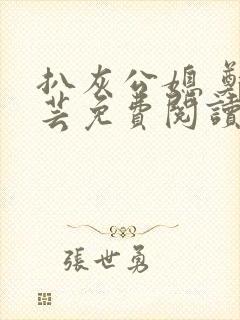 扒灰公媳 鄭
芸免費閱讀
張世勇